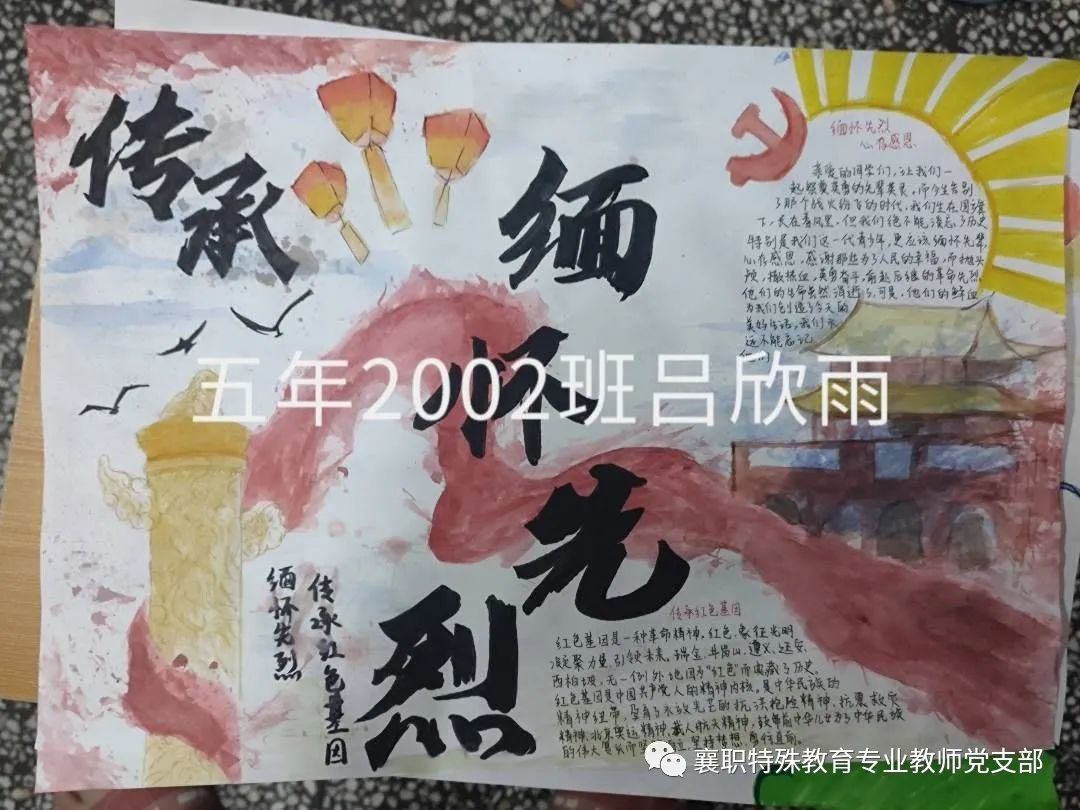 传承
缅
怀
先
烈
缅怀先烈
心存感恩
亲爱的同学们，让我们一
起缅怀英勇的先辈英灵，而今生告别
了那个战火纷飞的时代，我们生在国旗
下，长在春风里，但我们绝不能淡忘了历史
特别是我们这一代青少年，更应该缅怀先辈，
心存感恩，感谢那些为了人民的幸福，而抛头
颅，撒热血，英勇奋斗，前赴后继的革命先烈
他们的生命虽然消逝了，可是，他们的鲜血
为我们创造了今天的
美好生活，我们永
远不能忘记
五年2002班吕欣雨
传承红色基因
缅怀先烈
传承红色基因
红色基因是一种革命精神，红色，象征光明
凝聚力量，引领未来，瑞金，井岗山，遵义，延安，
西柏坡，无一例外地因为“红色”而
红色基因是中国共产党人的精神内核，是中华民族的
精神纽带，孕育了永放光芒的抗洪抢险精神，抗震救灾
精神，北京奥运精神，载人航天精神，鼓舞着中华儿女为了中华民族
的伟大复兴而
襄职特殊教育专业教师党支部